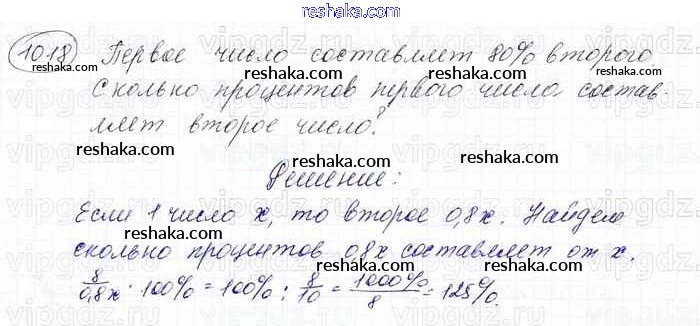 reshaka.com
1018 Первое число составляет 80% второго.
reshaka.com reshaka.com reshaka.com
Сколько процентов первого числа состав
reshaka.com reshaka.com reshaka.com
ляет второе число?
reshaka.com
Решение:
reshaka.com reshaka.com reshaka.com
Если 1 число x, то второе 0,8x. Найдем
сколько процентов 0,8x составляет от x.
reshaka.com reshaka.com reshaka.com
8/0,8x · 100% = 100% : 8/10 = 1000%/8 = 125%.
reshaka.com